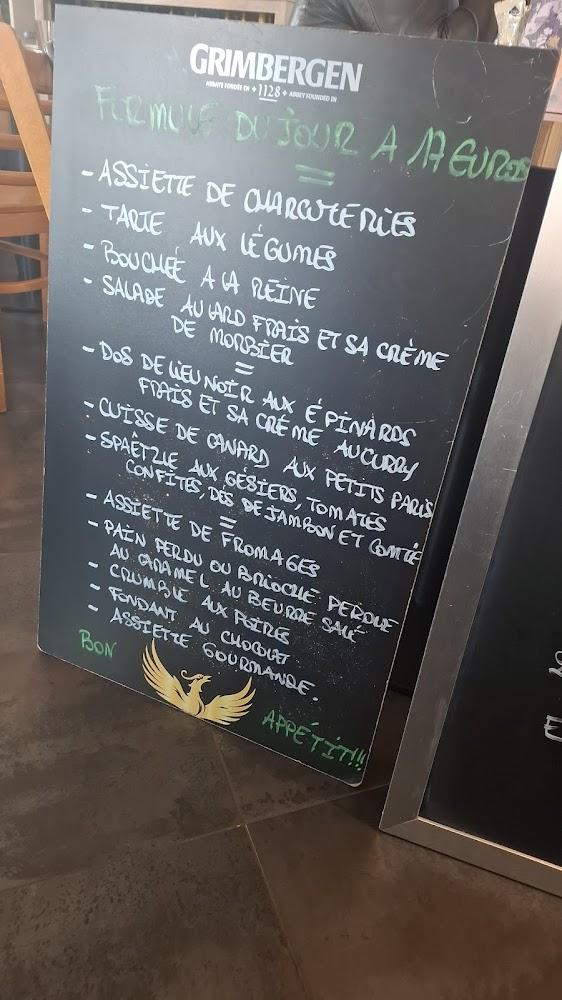 GRIMBERGEN
ABBAYE FONDÉE EN 1128 ABBEY FOUNDED IN
FORMULE DU JOUR A 17 EUROS
=
- ASSIETTE DE CHARCUTERIES
- TARTE AUX LÉGUMES
- BOUCHÉE A LA REINE
- SALADE AU LARD FRAIS ET SA CRÈME
DE MORBIER
=
- DOS DE LIEU NOIR AUX ÉPINARDS
FRAIS ET SA CRÈME AU CURRY
- CUISSE DE CANARD AUX PETITS PARIS
- SPAËTZLE AUX GÉSIERS, TOMATES
CONFITES, DÉS DE JAMBON ET COMTÉ
=
- ASSIETTE DE FROMAGES
- PAIN PERDU OU BRIOCHE PERDUE
AU CARAMEL AU BEURRE SALÉ
- CRUMBLE AUX POIRES
- FONDANT AU CHOCOLAT
- ASSIETTE GOURMANDE.
BON
APPÉTIT!!!